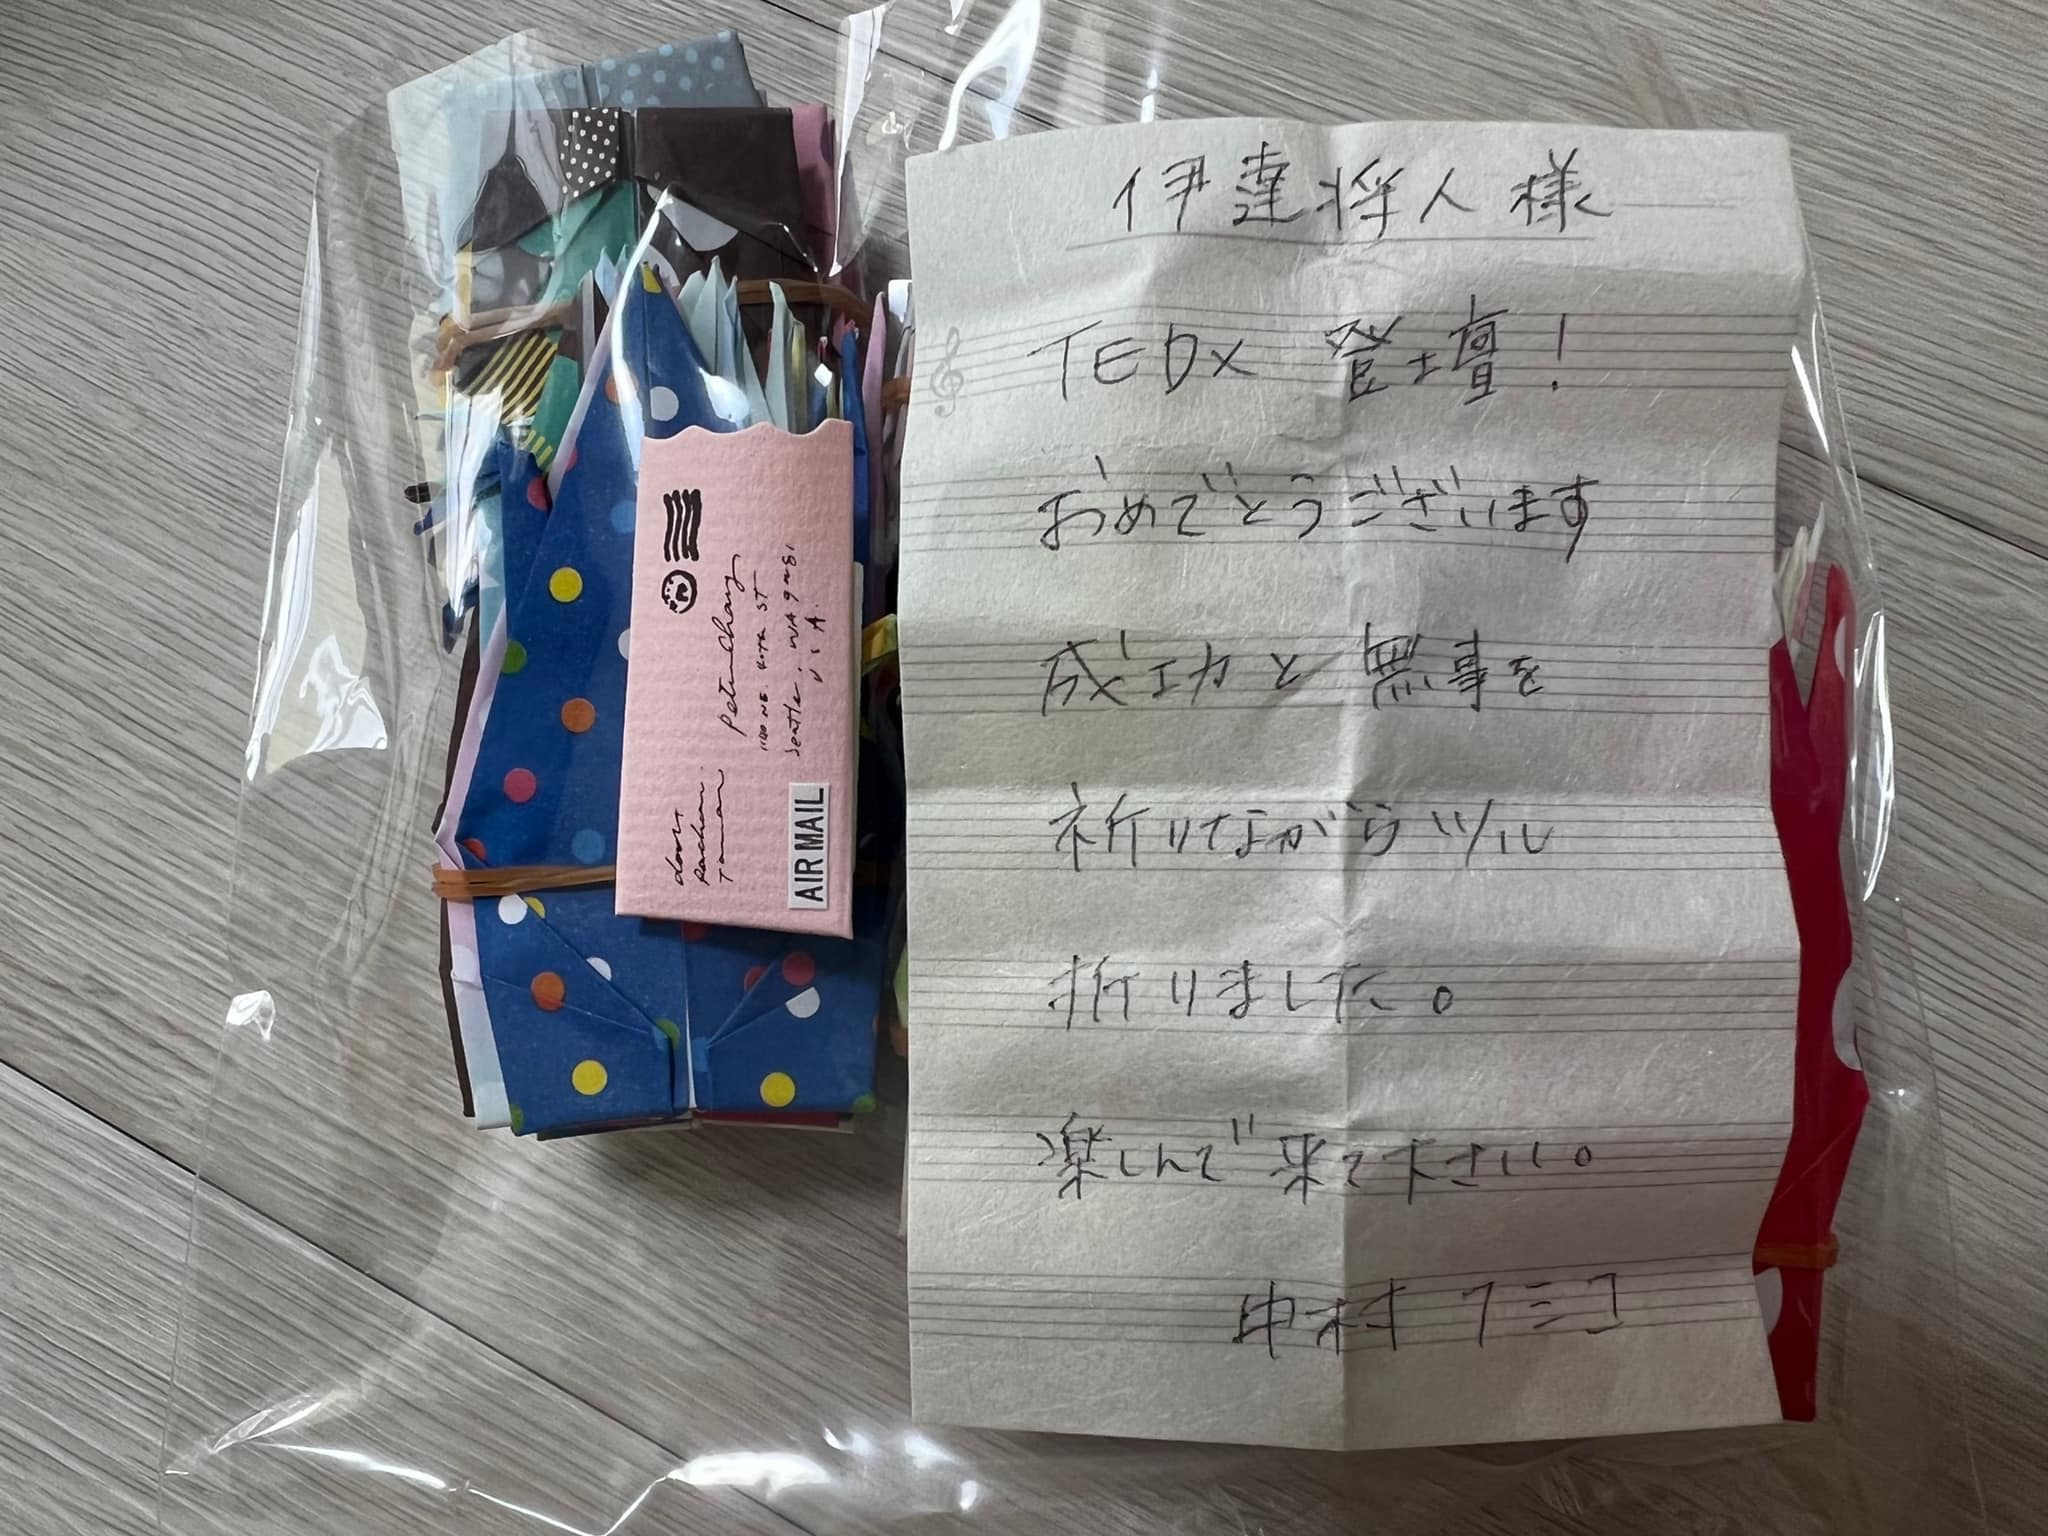 伊達将人様
TEDx 登壇!
おめでとうございます
成功と無事を
祈りながらツル
折りました。
楽しんで来て下さい。
中村フミコ
Peter Chang
1140 NE. 40TH ST
Seattle. WA
U S A.
AIR MAIL